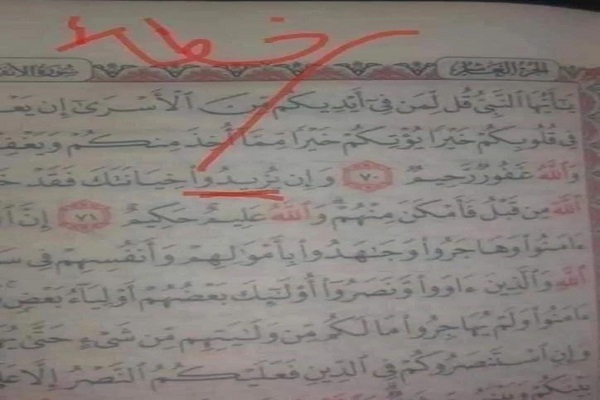 خطأ
الجزء العاشر سورة الأنف
يَٰٓأَيُّهَا ٱلنَّبِىُّ قُل لِّمَن فِىٓ أَيْدِيكُم مِّنَ ٱلْأَسْرَىٰٓ إِن يَعْ
فِى قُلُوبِكُمْ خَيْرًا يُؤْتِكُمْ خَيْرًا مِّمَّآ أُخِذَ مِنكُمْ وَيَغْفِر
وَٱللَّهُ غَفُورٌ رَّحِيمٌ ٧٠ وَإِن تُرِيدُوا۟ خِيَانَتَكَ فَقَدْ خَ
ٱللَّهَ مِن قَبْلُ فَأَمْكَنَ مِنْهُمْ وَٱللَّهُ عَلِيمٌ حَكِيمٌ ٧١ إِنَّ ٱ
ءَامَنُوا۟ وَهَاجَرُوا۟ وَجَٰهَدُوا۟ بِأَمْوَٰلِهِمْ وَأَنفُسِهِمْ فِى سَ
ٱللَّهِ وَٱلَّذِينَ ءَاوَوا۟ وَّنَصَرُوٓا۟ أُو۟لَٰٓئِكَ بَعْضُهُمْ أَوْلِيَآءُ بَعْضٍ
ءَامَنُوا۟ وَلَمْ يُهَاجِرُوا۟ مَا لَكُم مِّن وَلَٰيَتِهِم مِّن شَىْءٍ حَتَّىٰ يُهَ
وَإِنِ ٱسْتَنصَرُوكُمْ فِى ٱلدِّينِ فَعَلَيْكُمُ ٱلنَّصْرُ إِلَّا عَلَ
بَيْنَكُمْ